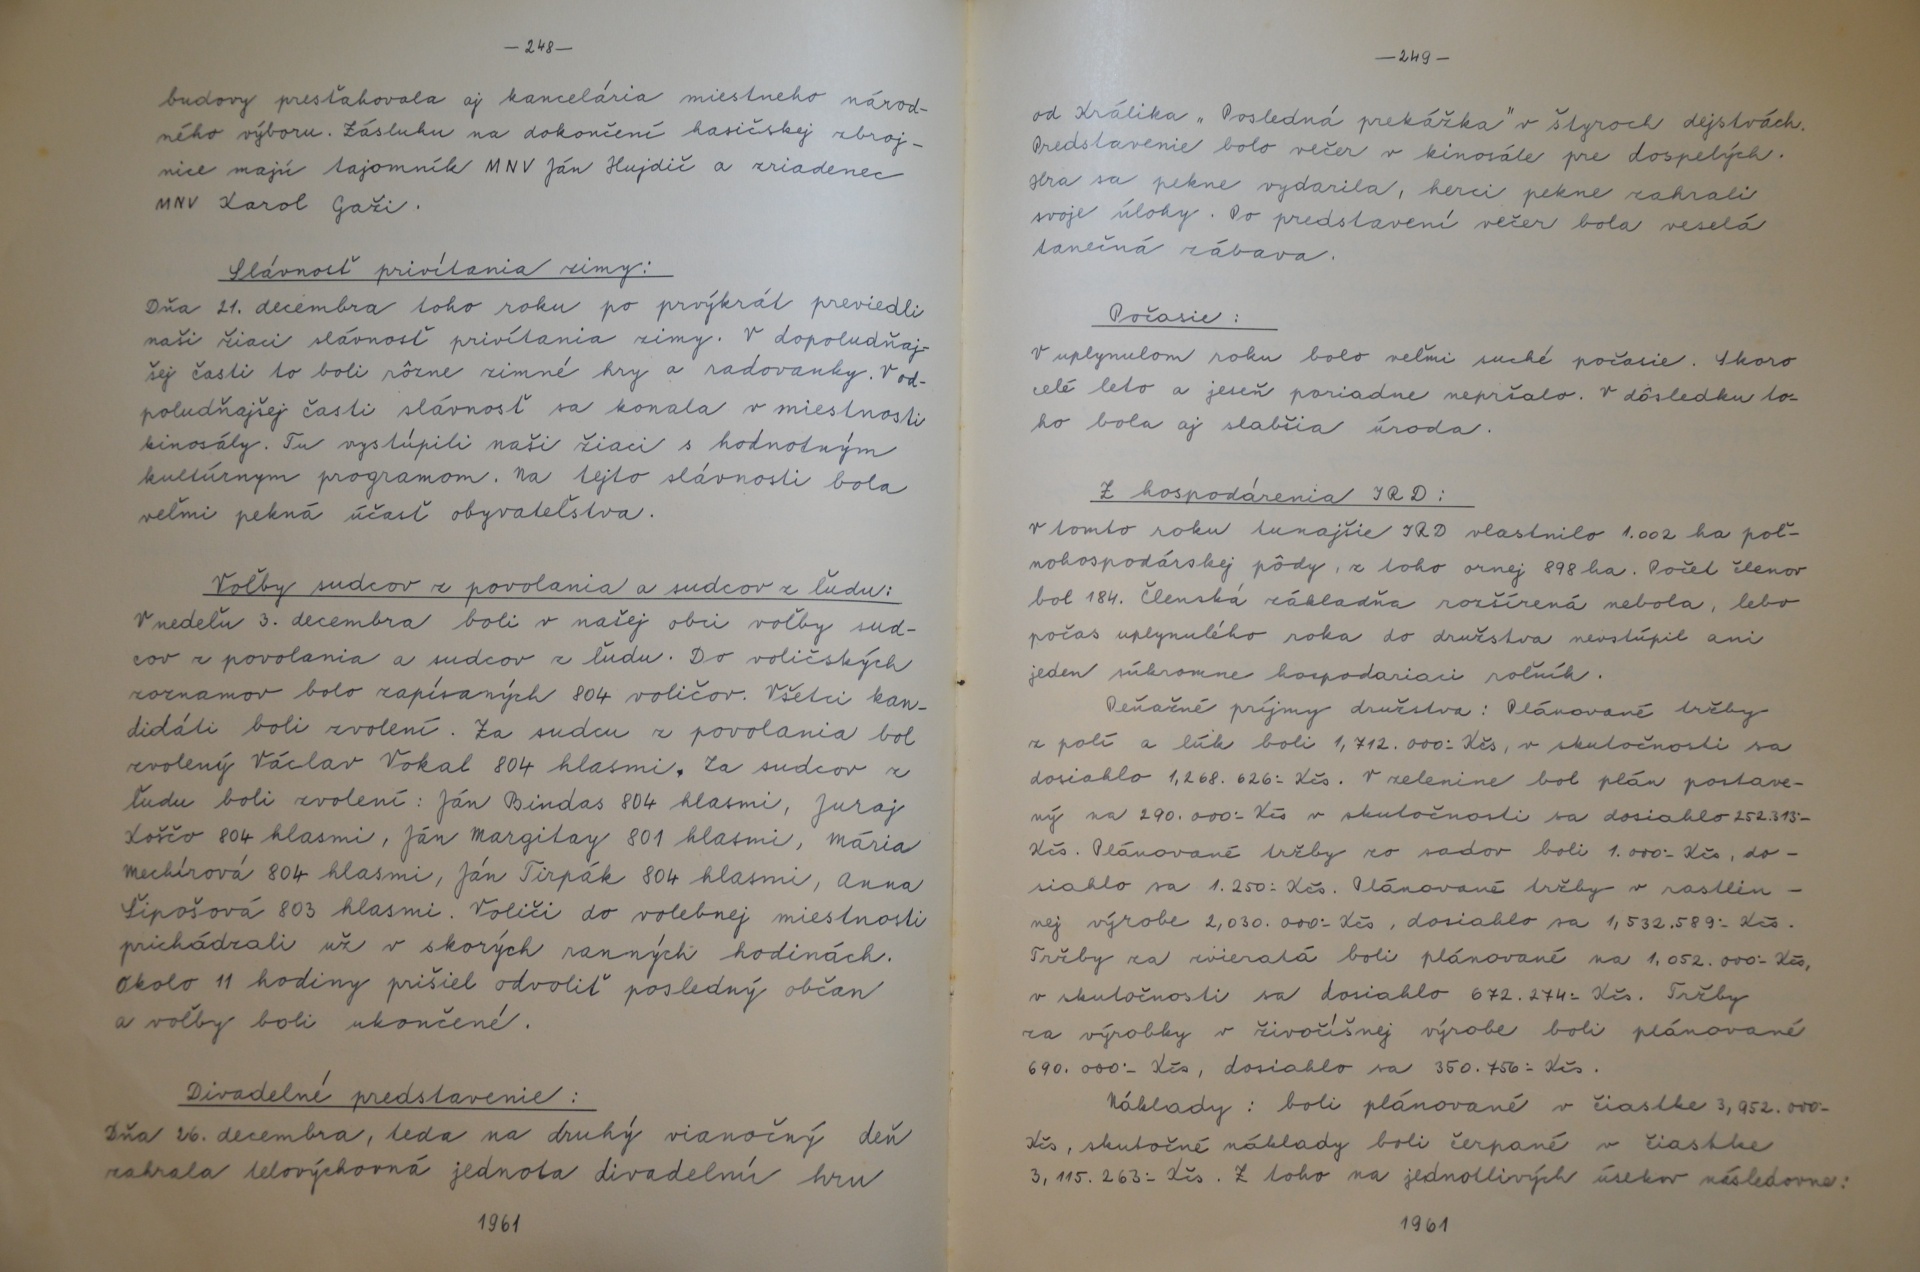 —248—
budovy presťahovala aj kancelária miestneho národ-
ného výboru. Zásluhu na dokončení hasičskej zbroj-
nice majú tajomník MNV Ján Hujdič a zriadenec
MNV Karol Gaži.
Slávnosť privítania zimy:
Dňa 21. decembra toho roku po prvýkrát previedli
naši žiaci slávnosť privítania zimy. V dopoludňaj-
šej časti to boli rôzne zimné hry a radovanky. V od-
poludňajšej časti slávnosť sa konala v miestnosti
kinosály. Tu vystúpili naši žiaci s hodnotným
kultúrnym programom. Na tejto slávnosti bola
veľmi pekná účasť obyvateľstva.
Voľby sudcov z povolania a sudcov z ľudu:
V nedeľu 3. decembra boli v našej obci voľby sud-
cov z povolania a sudcov z ľudu. Do voličských
zoznamov bolo zapísaných 804 voličov. Všetci kan-
didáti boli zvolení. Za sudcu z povolania bol
zvolený Václav Vokal 804 hlasmi. Za sudcov z
ľudu boli zvolení: Ján Bindas 804 hlasmi, Juraj
Koščo 804 hlasmi, Ján Margitay 801 hlasmi, Mária
Mechírová 804 hlasmi, Ján Tirpák 804 hlasmi, Anna
Šipošová 803 hlasmi. Voliči do volebnej miestnosti
prichádzali už v skorých ranných hodinách.
Okolo 11 hodiny prišiel odvoliť posledný občan
a voľby boli ukončené.
Divadelné predstavenie:
Dňa 26. decembra, teda na druhý vianočný deň
zahrala telovýchovná jednota divadelnú hru
1961
—249—
od Králika „Posledná prekážka" v štyroch dejstvách.
Predstavenie bolo večer v kinosále pre dospelých.
Hra sa pekne vydarila, herci pekne zahrali
svoje úlohy. Po predstavení večer bola veselá
tanečná zábava.
Počasie:
V uplynulom roku bolo veľmi suché počasie. Skoro
celé leto a jeseň poriadne nepršalo. V dôsledku to-
ho bola aj slabšia úroda.
Z hospodárenia JRD:
V tomto roku tunajšie JRD vlastnilo 1.002 ha poľ-
nohospodárskej pôdy, z toho ornej 898 ha. Počet členov
bol 184. Členská základňa rozšírená nebola, lebo
počas uplynulého roka do družstva nevstúpil ani
jeden súkromne hospodáriaci roľník.
Peňažné príjmy družstva: Plánované tržby
z polí a lúk boli 1,712.000:- Kčs, v skutočnosti sa
dosiahlo 1,268.626:- Kčs. V zelenine bol plán postave-
ný na 290.000:- Kčs v skutočnosti sa dosiahlo 252.313:-
Kčs. Plánované tržby zo sadov boli 1.000:- Kčs, do-
siahlo sa 1.250:- Kčs. Plánované tržby v rastlin-
nej výrobe 2,030.000:- Kčs, dosiahlo sa 1,532.589:- Kčs.
Tržby za zvieratá boli plánované na 1,052.000:- Kčs,
v skutočnosti sa dosiahlo 672.274:- Kčs. Tržby
za výrobky v živočíšnej výrobe boli plánované
690.000:- Kčs, dosiahlo sa 350.756:- Kčs.
Náklady: boli plánované v čiastke 3,952.000:-
Kčs, skutočné náklady boli čerpané v čiastke
3,115.263:- Kčs. Z toho na jednotlivých úsekov následovne:
1961